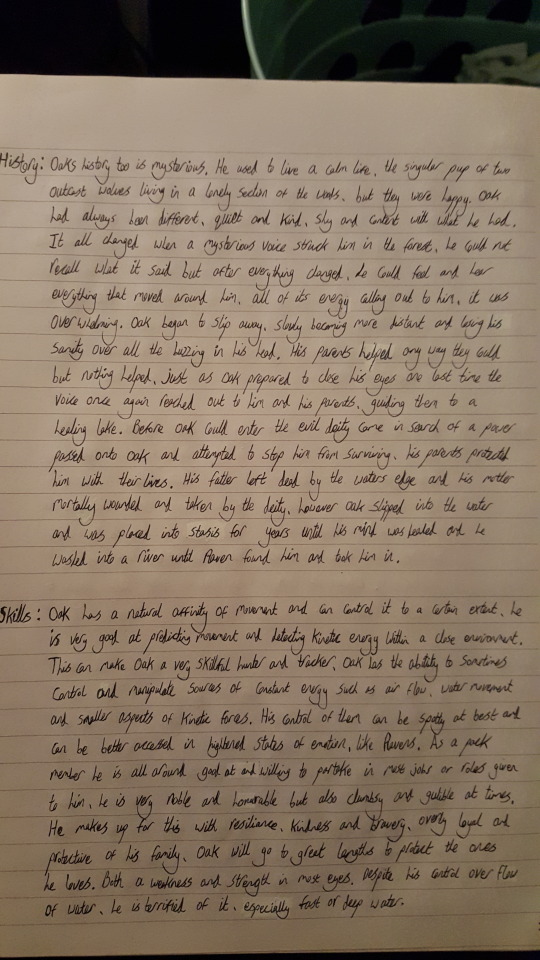 History: Oaks history too is mysterious. He used to live a calm life, the singular pup of two
outcast wolves living in a lonely section of the woods, but they were happy. Oak
had always been different, quiet and kind, shy and content with what he had.
It all changed when a mysterious voice struck him in the forest, he could not
recall what it said but after everything changed, he could feel and hear
everything that moved around him, all of its energy calling out to him, it was
overwhelming. Oak began to slip away, slowly becoming more distant and losing his
sanity over all the buzzing in his head. His parents helped any way they could
but nothing helped, just as Oak prepared to close his eyes one last time the
voice once again reached out to him and his parents, guiding them to a
healing lake. Before Oak could enter the evil deity came in search of a power
passed onto Oak and attempted to stop him from surviving, his parents protected
him with their lives. His father left dead by the waters edge and his mother
mortally wounded and taken by the deity, however Oak slipped into the water
and was placed into stasis for years until his mind was healed and he
washed into a river until Raven found him and took him in.
Skills: Oak has a natural affinity of movement and can control it to a certain extent, he
is very good at predicting movement and detecting kinetic energy within a close environment.
This can make Oak a very skillful hunter and tracker, Oak has the ability to sometimes
control and manipulate sources of constant energy such as air flow, water movement
and smaller aspects of kinetic forces. His control of them can be spotty at best and
can be better accessed in hightened states of emotion, like Ravens. As a pack
member he is all around good at and willing to partake in most jobs or roles given
to him, he is very noble and honourable but also clumbsy and gulible at times.
He makes up for this with resiliance, kindness and bravery, overly loyal and
protective of his family, Oak will go to great lengths to protect the ones
he loves. Both a weakness and strength in most eyes. Despite his control over flow
of water, he is terrified of it, especially fast or deep water.